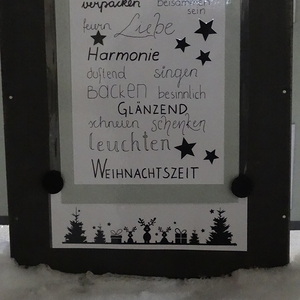 verpacken Beisammensein
feiern Liebe
Harmonie
duftend singen
BACKEN besinnlich
GLÄNZEND
schneien schenken
leuchten
WEIHNACHTSZEIT